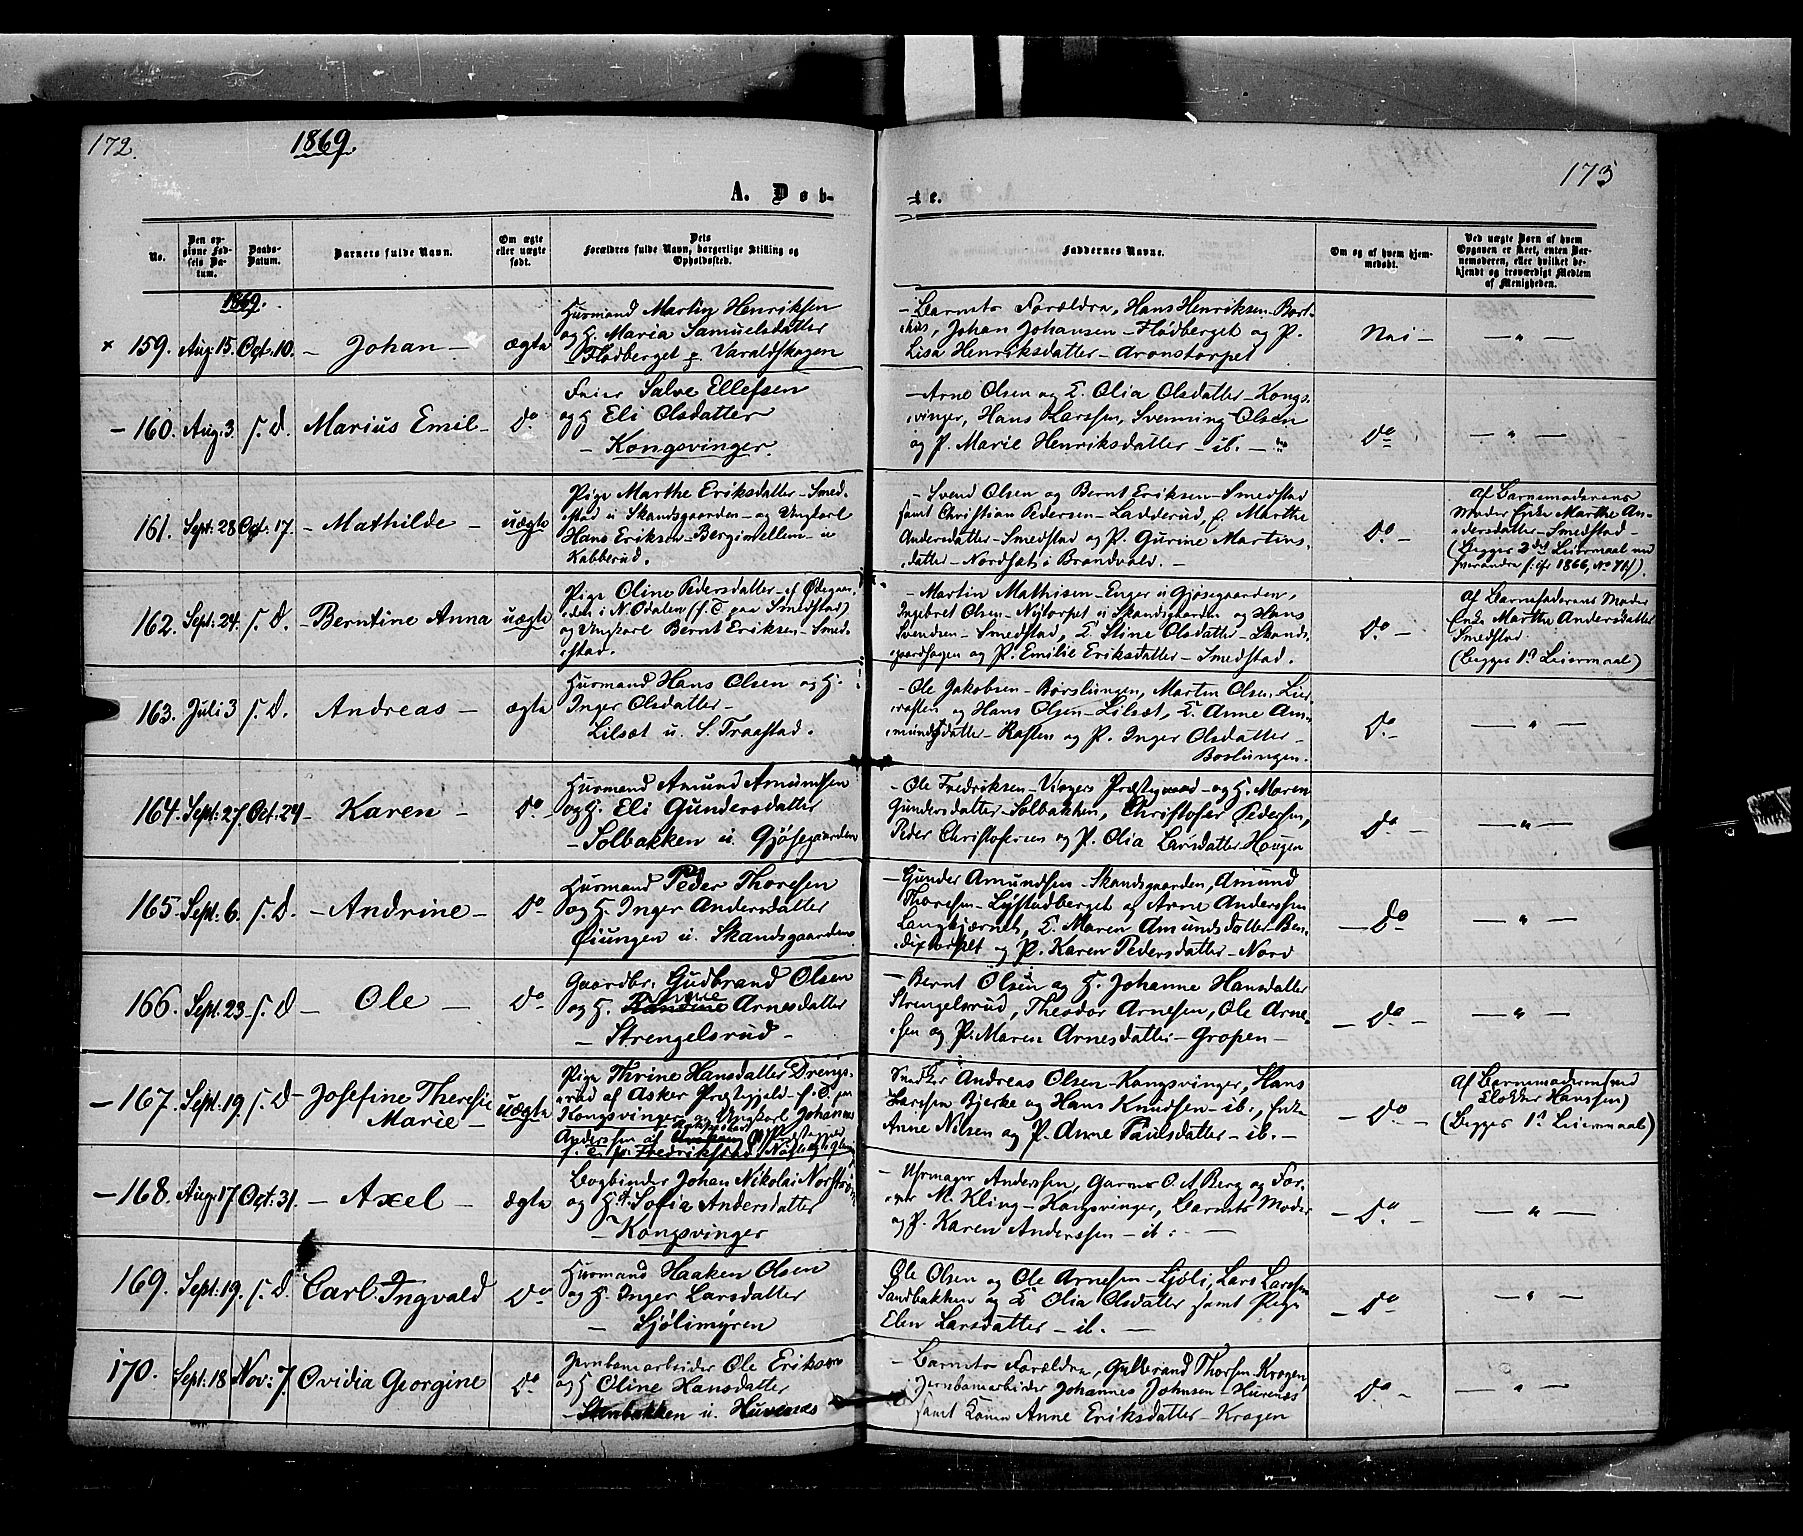 172.
1869.
173
A. Døb-
te.
No.
Den op-
givne Fød-
sels Da-
tum.
Daabs-
Datum.
Barnets fulde Navn.
Om ægte
eller uægte
født.
Dets
Forældres fulde Navn, borgerlige Stilling og
Opholdssted.
Faddernes Navne.
Om og af hvem hjem-
medøbt.
Ved uægte Børn af hvem
Opgaven er skeet, enten Bar-
nemoderen, eller hvilket be-
kjendt og troværdigt Medlem
af Menigheden.
1869.
× 159. Aug: 15. Oct. 10. – Johan – ægte
Husmand Martin Henriksen
og H. Maria Samuelsdatter
Flødberget p. Varaldskogen
– Barnets Forældre, Hans Henriksen
Johan Johansen – Flødberget og P.
Lisa Henriksdatter – Aronstorpet
Nei – – " –
– 160. Aug: 3. s. D. Marius Emil – do –
Feier Salve Ellefsen
og H. Eli Olsdatter
– Kongsvinger.
– Arne Olsen og E. Olia Olsdatter – Kongs-
vinger, Hans Larssen, Svenning Olsen
og P. Marie Henriksdatter – ib. –
do – " –
161. Sept: 28 Oct. 17. – Mathilde – uægte
Pige Marthe Eriksdatter – Smed-
stad u. Skandsgaarden – og Ungkarl
Hans Eriksen – Bergimellem – u
Kabberud.
– Svend Olsen og Bernt Eriksen – Smedstad
samt Christian Pedersen – Ladderud, E. Marthe
Andersdatter – Smedstad og P. Gurine Martins-
datter – Nordset i Brandvold. –
do –
af Barnemoderens
Moder Enke Marthe An-
dersdatter – Smedstad –
(Begges 2det Leiermaal med
hverandre, 1866, No 76).
162. Sept: 24. s. D. – Berntine Anna uægte
Pige Oline Pedersdatter – af Ødegaar-
den i N. Odalen (f. T. paa Smedstad)
og Ungkarl Bernt Eriksen – Smed-
stad.
– Martin Mathisen – Enger u Gjøsegaarden,
Ingebret Olsen – Nytorpet u Skandsgaarden og Hans
Svendsen – Smedstad, E. Stine Olsdatter – Skands-
gaardsagen og P. Emilie Eriksdatter – Smedstad.
do –
af Barnefaderens Moder
Enke Marthe Andersdatter
Smedstad.
(Begges 1ste Leiermaal)
163. Juli 3 s. D. Andreas – ægte
Husmand Hans Olsen og H.
Inger Olsdatter –
Lilsæt u. S. Traastad.
– Ole Jakobsen – Børslungen, Martin Olsen
Raften og Hans Olsen – Lilsæt, E. Anne Am-
mundsdatter – Raften og P. Inger Olsdatter –
Boslungen.
do – – " –
164. Sept: 27. Oct: 24 – Karen – do –
Husmand Amund Amundsen
og H. Eli Gundersdatter
– Solbakken u. Gjøsegaarden
– Ole Fredriksen – Vingers Præstegaard – og H. Maren
Gundersdatter – Solbakken, Christofer Pedersen,
Peder Christofersen og P. Olia Larsdatter Hougen
do – – " –
165. Sept: 6. s. D. – Andrine – do –
Husmand Peder Thoresen
og H. Inger Andersdatter
Øiungen u. Skandsgaarden
– Gunder Amundsen – Skandsgaarden, Amund
Thoresen – Lystadberget og Arne Anderssen
Langbjørnet, E. Maren Amundsdatter Ben-
dixtorpet og P. Karen Pedersdatter – Nord
– do – " –
166. Sept. 23 – s. D – Ole – do
Gaardbr. Gudbrand Olsen
og H. Arnesdatter
– Strengelsrud –
– Bernt Olsen og H. Johanne Hansdatter
Strengelsrud, Theodor Arnesen, Ole Arne-
sen og P. Maren Arnesdatter – Gropen –
– do – – " –
– 167. Sept: 19. s. D – Josefine Therese
Marie – uægte
Pige Thrine Hansdatter Drengs-
rud af Asker Præstegjeld – f. T. paa
Kongsvinger og Ungkarl Johannes
Anderssen af
f. T. paa Fredrikstad
Snedker Andreas Olsen – Kongsvinger, Hans
Larssen Bjerke og Hans Knudsen – ib., Enke
Anne Nilsen og P. Anne Paulsdatter – ib. –
– do –
af Barnemoderen (ved
Klokker Hanssen)
(Begges 1ste Leiermaal)
– 168. Aug: 17. Oct: 31. – Axel – ægte
Bogbinder Johan Nikolai Norstrøm
og H. Sofia Andersdatter
– Kongsvinger
– Uhrmager Anderssen, Garver O. A. Berg og Far-
ver M. Kling – Kongsvinger, Barnets Moder
og P. Karen Anderssen – ib: –
– do – – " –
169. Sept: 19. s. D. Carl Ingvald do
Husmand Haaken Olsen
og H. Inger Larsdatter
– Sjølimyren
Ole Olsen og Ole Arnesen – Sjøli, Lars Larssen
Sandbakken og E Olia Olsdatter samt Pige
Elen Larsdatter – ib. –
– do – – " –
170. Sept: 18 Nov: 7. Ovidia Georgine do
Jernbanearbeider Ole Eriksen
og H Oline Hansdatter
– Stenbakken u. Huvenæs
– Barnets Forældre, Gulbrand Thorsen – Krogen
Jernbanearbeider Johannes Johnsen – Huvenæs
samt Kone Anne Eriksdatter – Krogen
do – – " –